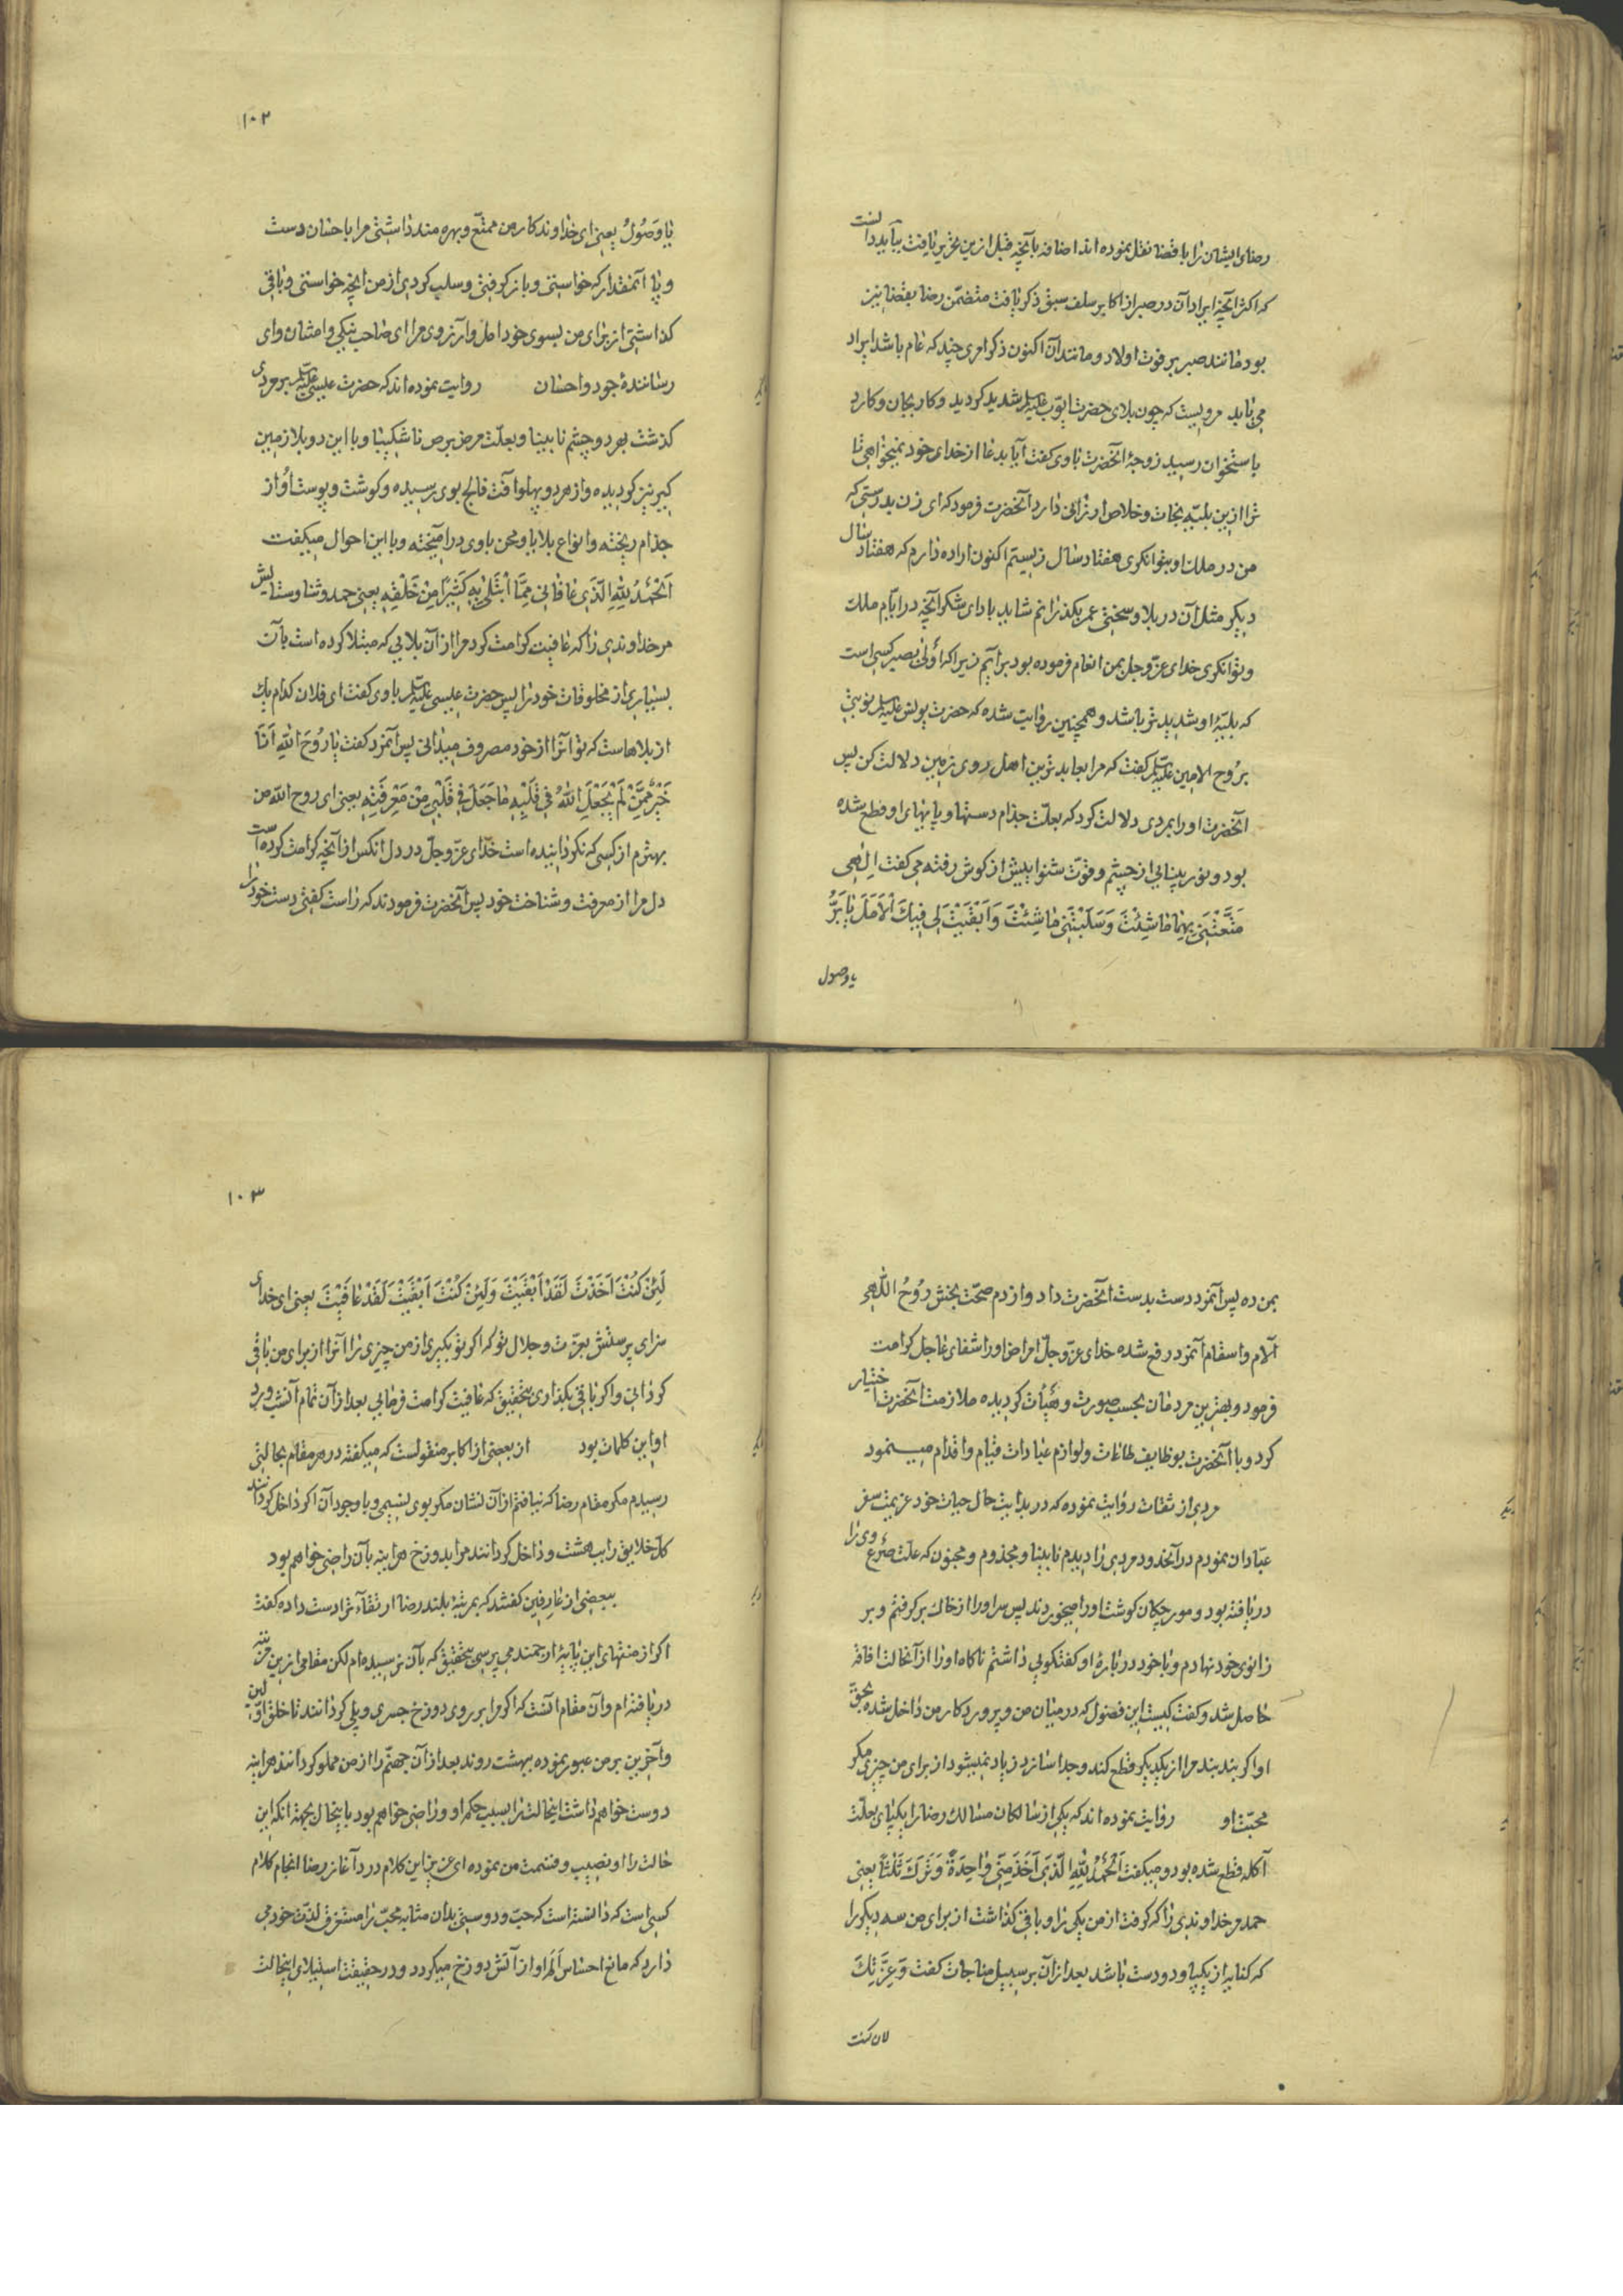 رضای ایشان را با قضا نقل نموده اند اضافه بآنچه قبل ازین تحریر یافت بباید دانست
که اکثر آنچه ایراد آن در صبر از اکابر سلف سبق ذکر یافت متضمّن رضا بقضا نیز
بود مانند صبر بر فوت اولاد و مانند آن اکنون ذکر امری چند که عام باشد ایراد
می یابد مرویست که چون بلای حضرت ایّوب علیه السلم شدید کردید و کار بجان و کارد
باستخوان رسید زوجهٔ آنحضرت باوی کفت آیا بدعا از خدای خود نمیخواهی تا
ترا ازین بلیّه نجات و خلاص ارزانی دارد آنحضرت فرمود که ای زن بدرستی که
من در ملک و توانکری هفتاد سال زیستم اکنون اراده دارم که هفتاد سال
دیکر مثل آن در بلا و سختی عمر بکذرانم شاید بادای شکر آنچه در ایّام ملک
و توانکری خدای عزّ و جل بمن انعام فرموده بود برآیم زیرا که أولی بصبر کسی است
که بلیّهٔ او شدیدتر باشد و همچنین روایت شده که حضرت یونس علیه السلم نوبتی
بروح الامین علیه السلم کفت که مرا بعابدترین اهل روی زمین دلالت کن پس
آنحضرت اورا بمردی دلالت کرد که بعلّت جذام دستها و پایهای او قطع شده
بود و نور بینائی از چشم و قوّت شنوایش از کوش رفته می کفت الهی
مَتَّعْتَنِي بِهِمَا مَا شِئْتَ وَسَلَبْتَنِي مَا شِئْتَ وَاَبْقَيْتَ لِي فِيكَ الْاَمَلَ يَا بَرُّ
یا وصول
۱۰۲
یَا وَصُولُ یعنی ای خداوندکار من ممتّع و بهره مند داشتی مرا باحسان دست
و پا آنمقدار که خواستی و باز کرفتی و سلب کردی از من آنچه خواستی و باقی
کذاشتی از برای من بسوی خود امل و آرزوی مرا ای صاحب نیکی و امتنان و ای
رسانندهٔ جود و احسان روایت نموده اند که حضرت عیسی علیه السلم بر مردی
کذشت بهر دو چشم نابینا و بعلّت مرض برص ناشکیبا و با این دو بلا زمین
کیر نیز کردیده و از هر دو پهلو آفت فالج بوی رسیده و کوشت و پوست او از
جذام ریخته و انواع بلایا و محن با وی درآمیخته و با این احوال میکفت
اَلْحَمْدُ لِلّٰهِ الَّذِي عَافَانِي مِمَّا ابْتَلٰی بِهِ كَثِيرًا مِنْ خَلْقِهِ یعنی حمد و ثنا و ستایش
مر خداوندی را که عافیت کرامت کرد مرا از آن بلایی که مبتلا کرده است بآن
بسیاری از مخلوقات خود را پس حضرت عیسی علیه السلم باوی کفت ای فلان کدام یک
از بلاهاست که تو آنرا از خود مصروف میدانی پس آنمرد کفت یا رُوحَ اللّٰهِ اَنَا
خَيْرٌ مِمَّنْ لَمْ يَجْعَلِ اللّٰهُ فِي قَلْبِهِ مَا جَعَلَ فِي قَلْبِي مِنْ مَعْرِفَتِهِ یعنی ای روح اللّٰه من
بهترم از کسی که نکردانیده است خدای عزّ و جلّ در دل آنکس از آنچه کرامت کرده است
دل مرا از معرفت و شناخت خود پس آنحضرت فرمودند که راست کفتی دست خود را
بمن ده پس آنمرد دست بدست آنحضرت داد و از دم صحّت بخش رُوحُ اللّٰهی
آلام و اسقام آنمرد رفع شده خدای عزّ و جلّ امراض اورا شفای عاجل کرامت
فرمود و بهترین مردمان بحسب صورت و هیأت کردیده ملازمت آنحضرت اختیار
کرد و با آنحضرت بوظایف طاعات و لوازم عبادات قیام و اقدام مینمود
مردی از ثقات روایت نموده که در بدایت حال حیات خود عزیمت سفر
عبّادان نمودم در آنحدود مردی را دیدم نابینا و مجذوم و مجنون که علّت صرع وی را
دریافته بود و مورچکان کوشت اورا میخوردند پس سر اورا از خاک برکرفتم و بر
زانوی خود نهادم و با خود دربارهٔ او کفتکویی داشتم ناکاه اورا از آنحالت افاقه
حاصل شد و کفت کیست این فضول که در میان من و پروردکار من داخل شده بحقّ
او اکر بند بند مرا از یکدیکر قطع کند و جدا سازد زیاد نمیشود از برای من چیزی مکر
محبّت او روایت نموده اند که یکی از سالکان مسالک رضا را یکپای بعلّت
آکله قطع شده بود و میکفت اَلْحَمْدُ لِلّٰهِ الَّذِي اَخَذَ مِنِّي وَاحِدَةً وَتَرَكَ ثَلٰثًا یعنی
حمد مر خداوندی را که کرفت از من یکی را و باقی کذاشت از برای من سه دیکر را
که کنایه از یکپا و دو دست باشد بعد از آن بر سبیل مناجات کفت وَعِزَّتِكَ
لان کنت
۱۰۳
لَئِنْ كُنْتَ اَخَذْتَ لَقَدْ اَبْقَيْتَ وَلَئِنْ كُنْتَ اَبْقَيْتَ لَقَدْ عَافَيْتَ یعنی ای خدای
سزای پرستش بعزّت و جلال تو که اکر تو بکیری از من چیزی را آنرا از برای من باقی
کردانی و اکر باقی بکذاری بتحقیق که عافیت کرامت فرمایی بعد از آن تمام آنشب ورد
او این کلمات بود از بعضی از اکابر منقولست که میکفته در هر مقام بحالتی
رسیدم مکر مقام رضا که نیافتم از آن نشان مکر بوی نسیمی و با وجود آن اکر داخل کردانند
کلّ خلایق را ببهشت و داخل کردانند مرا بدوزخ هرآینه بآن راضی خواهم بود
ببعضی از عارفین کفتند که بمرتبهٔ بلند رضا ارتقآء ترا دست داده کفت
اکر از منتهای این پایهٔ ارجمند می پرسی بتحقیق که بآن نرسیده ام لکن مقامی ازین مرتبه
دریافته ام و آن مقام آنست که اکر مرا بر روی دوزخ جسری و پلی کردانند تا خلق اوّلین
و آخرین بر من عبور نموده ببهشت روند بعد از آن جهنّم را از من مملو کردانند هرآینه
دوست خواهم داشت اینحالت را بسبب حکم او و راضی خواهم بود باینحال بجهة آنکه این
حالت را او نصیب و قسمت من نموده ای عزیز این کلام در آغاز رضا انجام کلام
کسی است که دانسته است که حبّ و دوستی بدان مثابه محبّ را مستغرق لذّت خود می
دارد که مانع احساس اَلَم او از آتش دوزخ میکردد و در حقیقت استیلای اینحالت